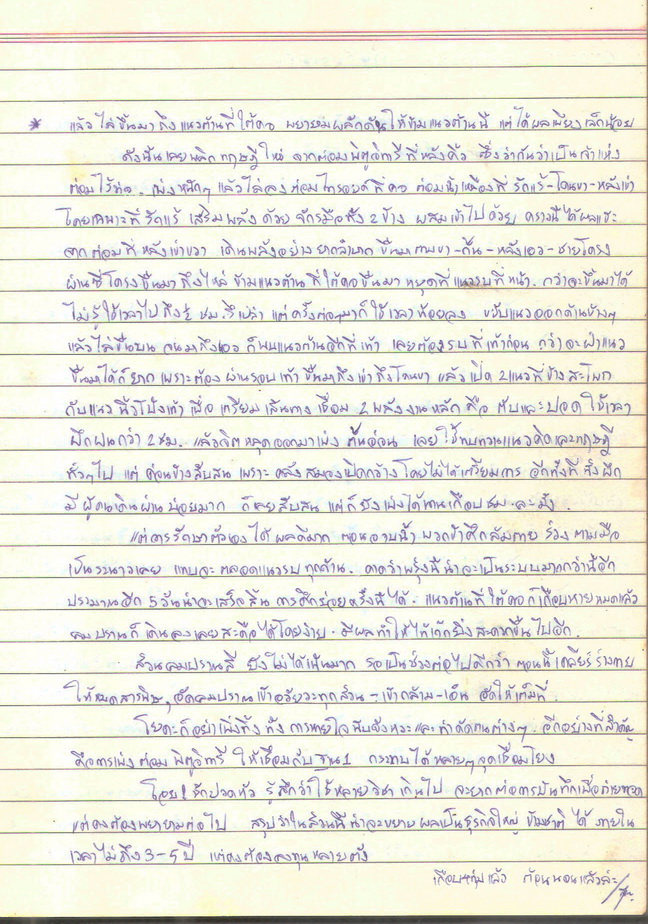 * แล้วไล่ขึ้นมาถึงแนวต้านที่ใต้คอ พยายามผลักดันให้ข้ามแนวต้านนี้ แต่ได้ผลเพียงเล็กน้อย
ดังนั้นเลยพลิกทฤษฎีใหม่ จากต่อมพิตูอิทารีที่หลังคิ้ว ซึ่งว่ากันว่าเป็นเจ้าแห่ง
ต่อมไร้ท่อ. เพ่งหนักๆ แล้วไล่ลงต่อมไทรอยด์ที่คอ ต่อมน้ำเหลืองที่รักแร้-โคนขา-หลังเข่า
โดยเฉพาะที่รักแร้ เสริมพลังด้วยจักรมือทั้ง 2 ข้าง ผสมเข้าไปด้วย คราวนี้ได้ผลแฮะ
จากต่อมที่หลังเข่าขวา เดินพลังอย่างยากลำบาก ขึ้นมาตามขา-ก้น-หลังเอว-ชายโครง
ผ่านซี่โครงขึ้นมาถึงไหล่ ข้ามแนวต้านที่ใต้คอขึ้นมา หยุดที่แนวรบที่หน้า. กว่าจะขึ้นมาได้
ไม่รู้ใช้เวลาไปถึง ½ ชม. รึเปล่า แต่ครั้งต่อๆมาก็ใช้เวลาน้อยลง ขยับแนวออกด้านข้างๆ
แล้วไล่ขึ้นบน จนมาถึงเอว ก็พบแนวต้านอีกที่เท้า เลยต้องรบที่เท้าก่อน กว่าจะฝ่าแนว
ขึ้นมาได้ก็ยาก เพราะต้องผ่านรอบเท้า ขึ้นมาถึงเข่าถึงโคนขา แล้วเปิด 2 แนวที่ข้างสะโพก
กับแนวนิ้วโป้งเท้า เพื่อเตรียมเส้นทางเชื่อม 2 พลังงานหลัก คือ ตับและปอด ใช้เวลา
ฝึกฝนกว่า 2 ชม. แล้วจิตหลุดออกมาเพ่ง ต้นอ่อน เลยใช้ทบทวนแนวคิดและทฤษฎี
ทั่วๆไป แต่ค่อนข้างสับสน เพราะคลังสมองเปิดกว้างโดยไม่ได้เตรียมการ อีกทั้งที่นั่งฝึก
มีผู้คนเดินผ่านบ่อยมาก ก็เลยสับสน แต่ก็ยังเพ่งได้นานเกือบชม. ละมั้ง.
แต่การรักษาตัวเองได้ผลดีมาก ตอนอาบน้ำ พวกข้าศึกล้มตาย ร่วงตามมือ
เป็นระนาวเลย แทบจะตลอดแนวรบทุกด้าน. คาดว่าพรุ่งนี้น่าจะเป็นระบบมากกว่านี้อีก
ประมาณอีก 5 วันน่าจะเสร็จสิ้นการศึกย่อยครั้งนี้ได้. แนวต้านที่ใต้คอก็เกือบหายหมดแล้ว
ลมปราณก็เดินลงเลยสะดือได้โดยง่าย. มีผลทำให้ไท้เก๊กยิ่งสะดวกขึ้นไปอีก.
ส่วนลมปราณสี ยังไม่ได้เน้นมาก รอเป็นช่วงต่อไปดีกว่า ตอนนี้เคลียร์ร่างกาย
ให้หมดสารพิษ, อัดลมปราณเข้าอวัยวะทุกส่วน-เข้ากล้าม-เอ็น อัดให้เต็มที่.
โยคะก็อย่าเพิ่งทิ้ง ทั้งการหายใจ นับจังหวะและท่าดัดตนต่างๆ. อีกอย่างที่สำคัญ
คือการเพ่งต่อมพิตูอิทารี ให้เชื่อมกับฐาน 1 กระทบได้หลายๆจุดเชื่อมโยง
โอย! ชักปวดหัว รู้สึกว่าใช้หลายวิชาเกินไป จะยากต่อการบันทึกเพื่อถ่ายทอด
แต่คงต้องพยายามต่อไป สรุปว่าในส่วนนี้น่าจะขยายผลเป็นธุรกิจใหญ่ ข้ามชาติ ได้ ภายใน
เวลาไม่ถึง 3-5 ปี แต่คงต้องลงทุนหลายตังค์
เกือบทุ่มแล้ว ก้อนนอนแล้วล่ะ